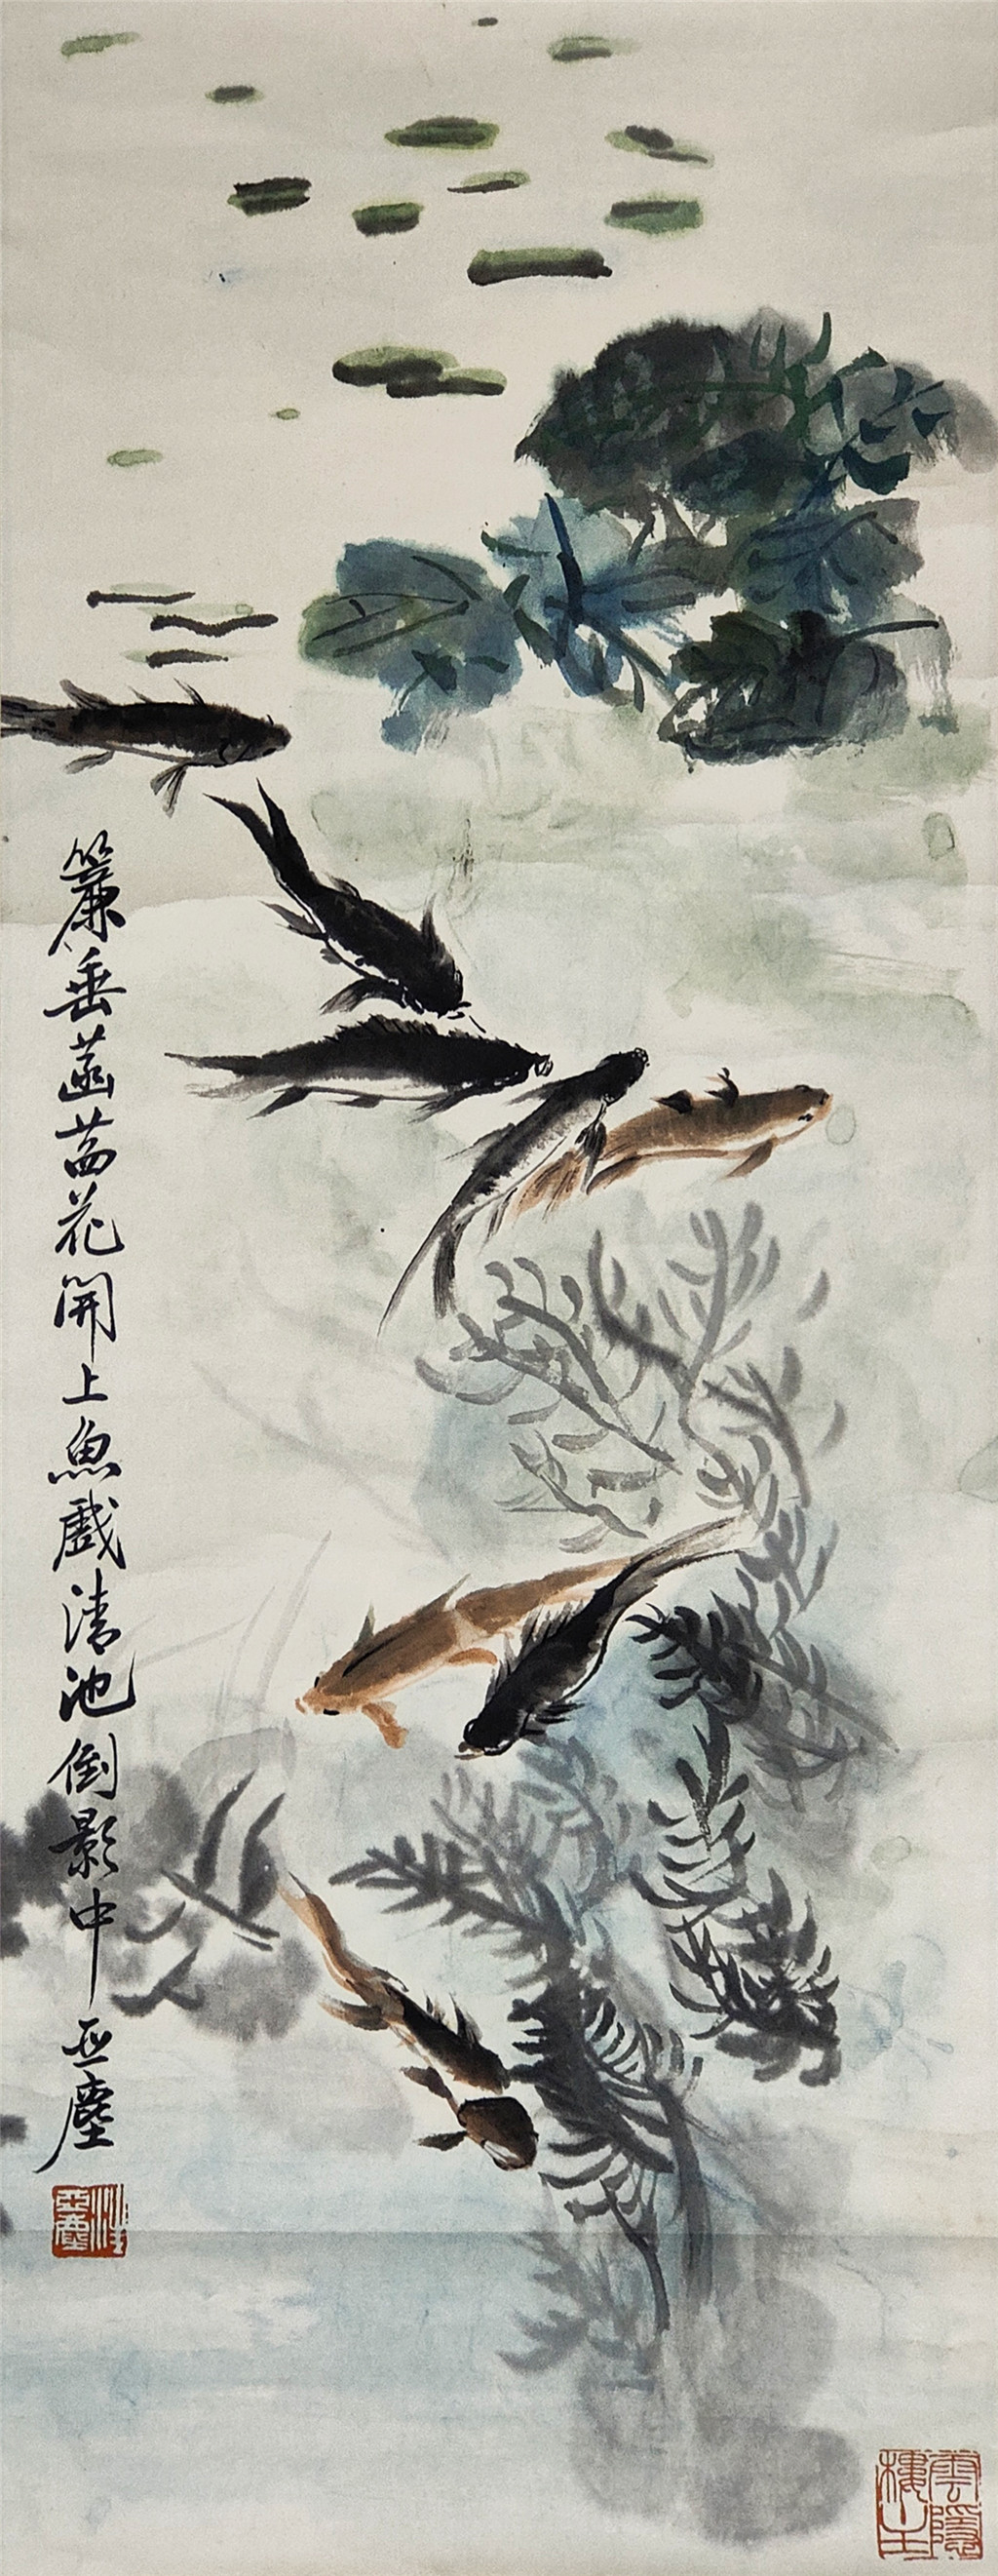 簾垂菡萏花開上魚戲清池倒影中
亞塵
汪亞塵
雲隱樓主